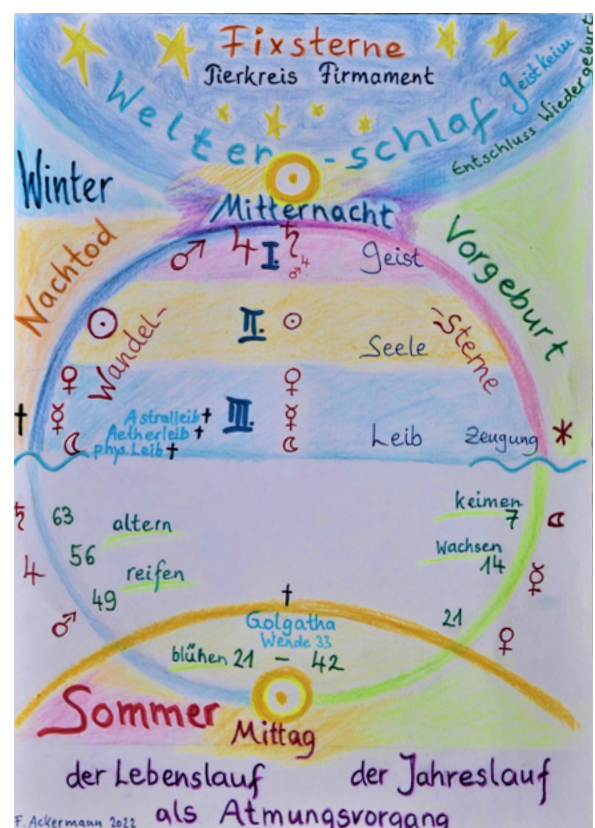 Fixsterne
Tierkreis Firmament
Welten-schlaf
Geistkeim
Entschluss Wiedergeburt
Winter
Mitternacht
Nachtod
Vorgeburt
♂ ♃ I. ♄
♂ ♃
Geist
☉ Wandel- II. ☉ -Sterne
Seele
♀ ♀
† ☿ Astralleib † III. ☿
Aetherleib †
☾ phys. Leib † ☾ Leib Zeugung *
♄ 63 altern keimen
7 ☾
♃ 56 reifen Wachsen
14 ☿
♂ 49 21 ♀
†
Golgatha
Wende 33
blühen 21 – 42
Sommer
Mittag
der Lebenslauf der Jahreslauf
als Atmungsvorgang
F. Ackermann 2022